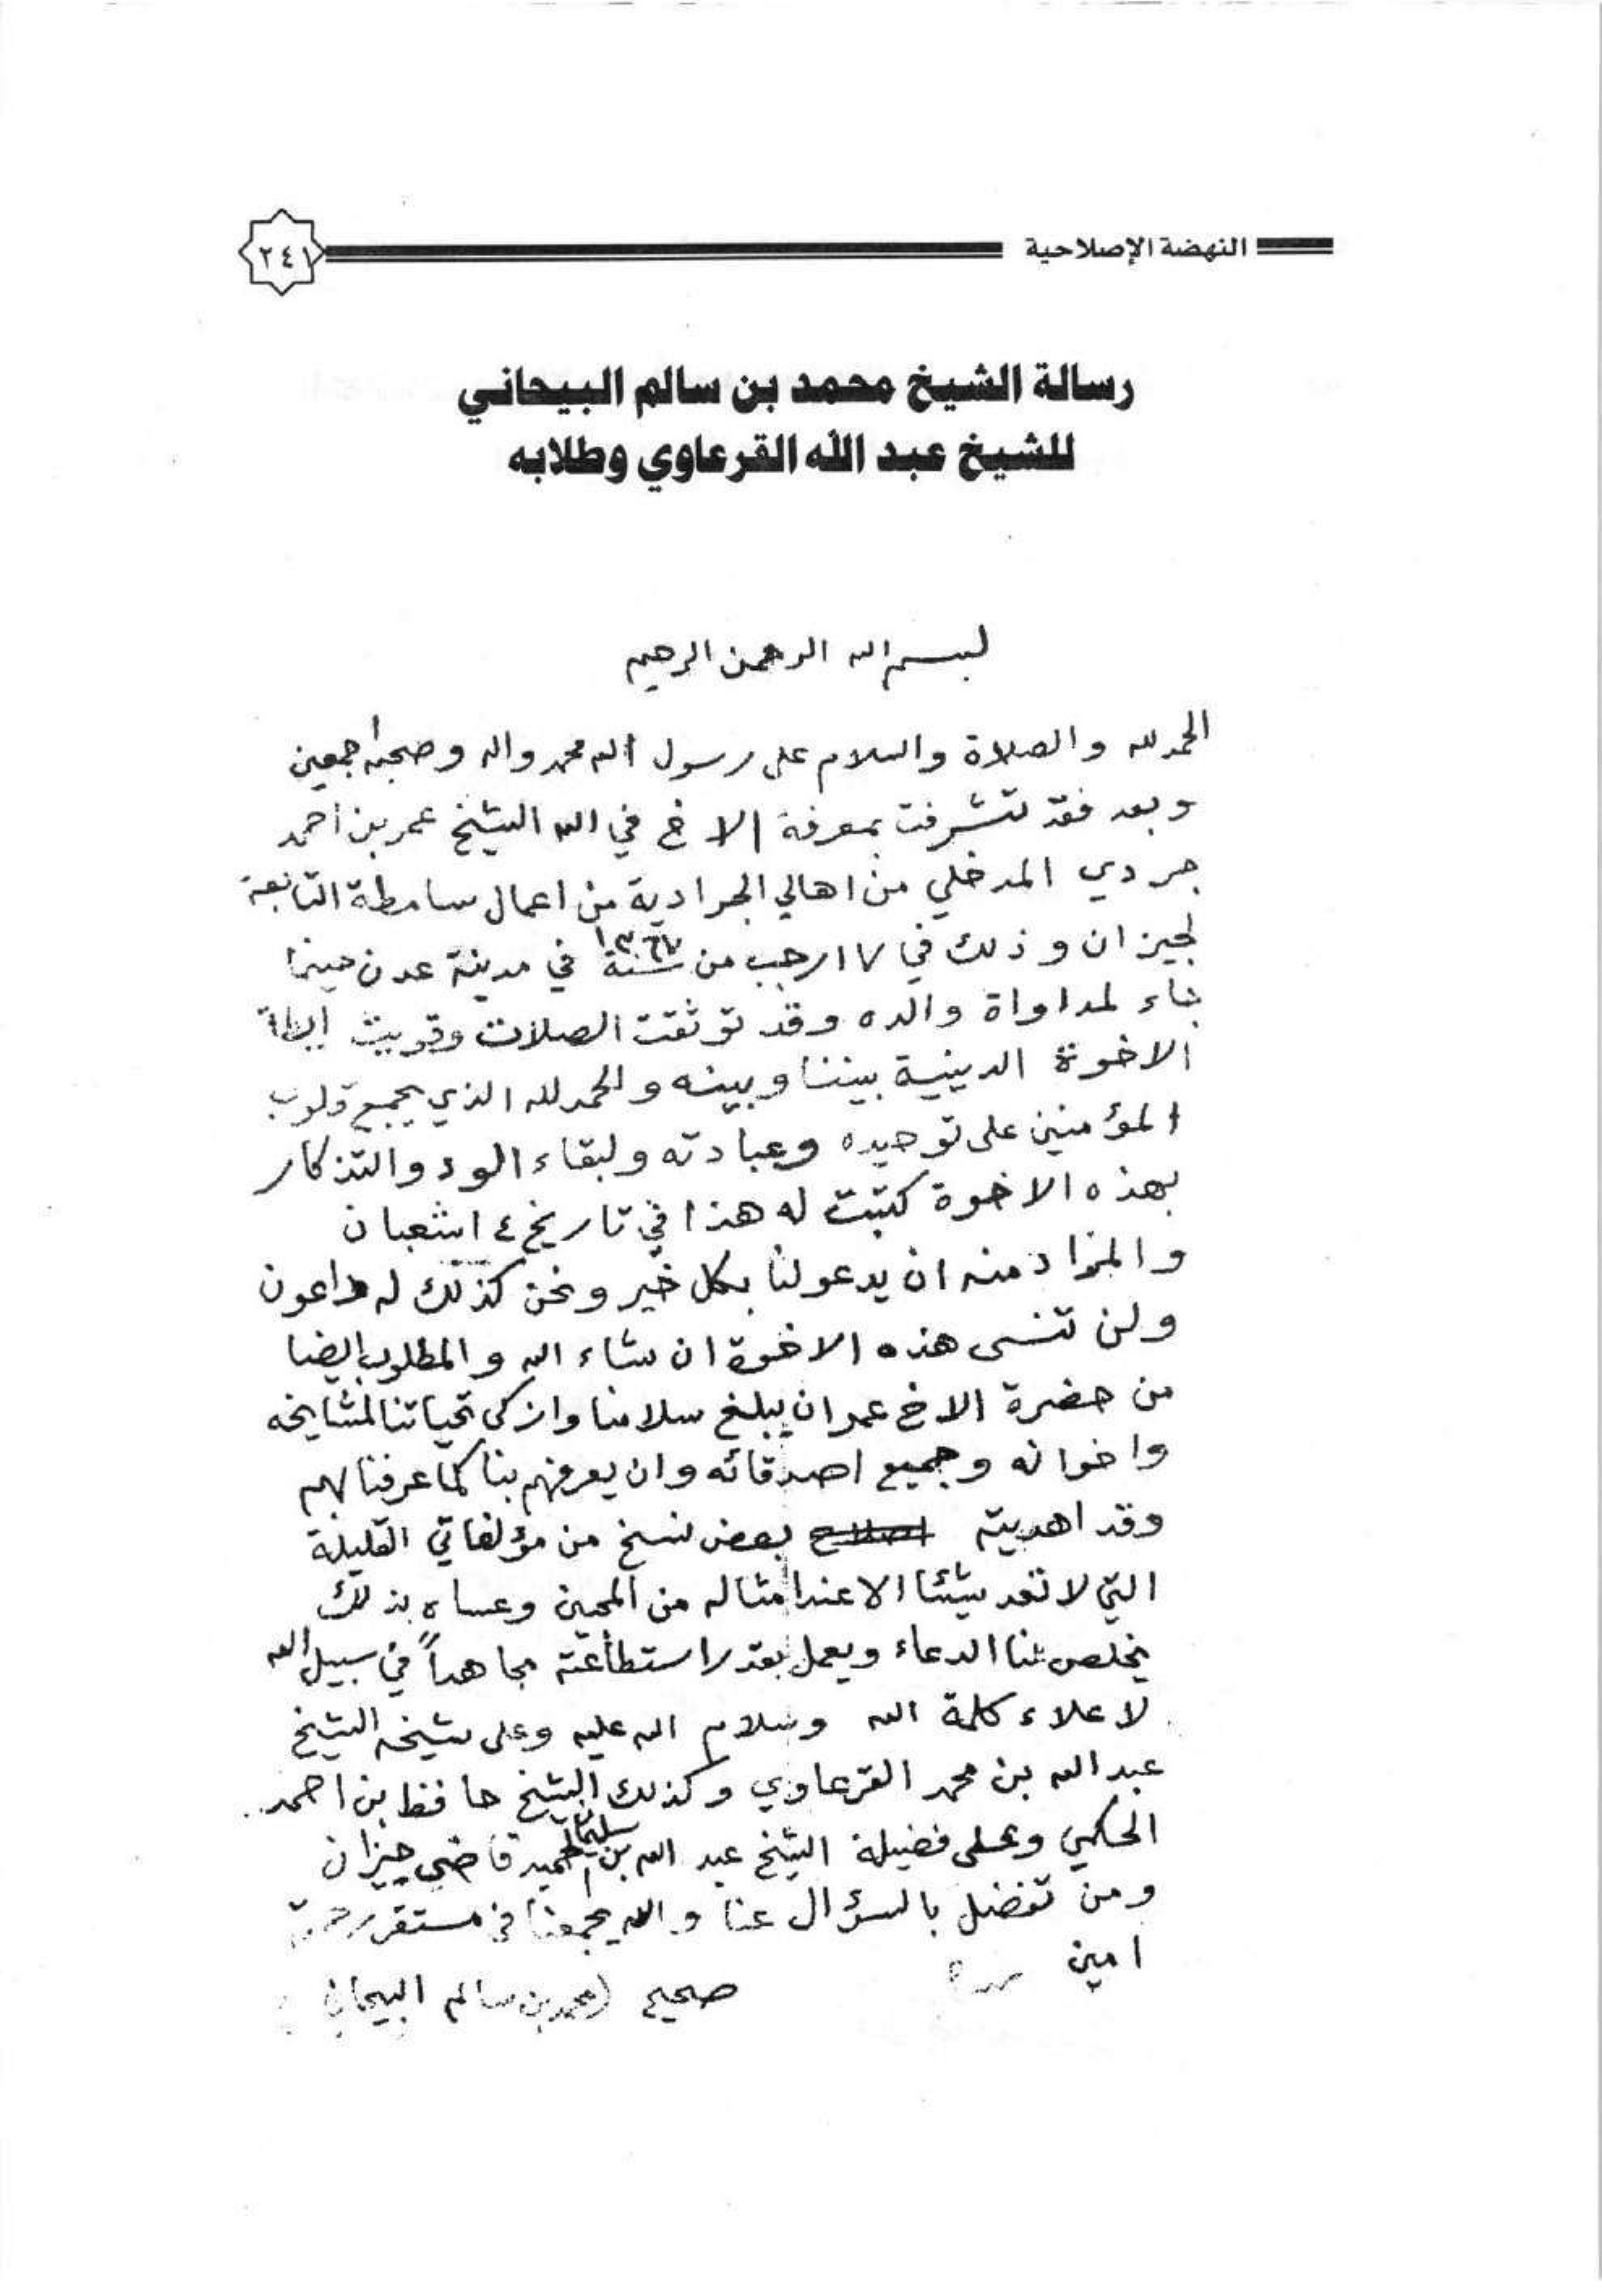 النهضة الإصلاحية
٢٤١
رسالة الشيخ محمد بن سالم البيحاني
للشيخ عبد الله القرعاوي وطلابه
بسم الله الرحمن الرحيم
الحمد لله والصلاة والسلام على رسول الله محمد واله وصحبه اجمعين
وبعد فقد تشرفت بمعرفة الاخ في الله الشيخ عمر بن احمد
جردي المدخلي من اهالي الجرادية من اعمال سامطة التابعة
لجيزان وذلك في ١٧ رجب من سنة ١٣٦٧ في مدينة عدن حينما
جاء لمداواة والده وقد توثقت الصلات وقويت
الاخوة الدينية بيننا وبينه والحمد لله الذي يجمع قلوب
المؤمنين على توحيده وعبادته ولبقاء الود والتذكار
بهذه الاخوة كتبت له هذا في تاريخ ١٤ شعبان
والمراد منه ان يدعو لنا بكل خير ونحن كذلك له داعون
ولن تنسى هذه الاخوة ان شاء الله والمطلوب ايضا
من حضرة الاخ عمر ان يبلغ سلامنا وازكى تحياتنا لمشايخه
واخوانه وجميع اصدقائه وان يعرفهم بنا كما عرفنا بهم
وقد اهديته اصلاح بعض نسخ من مؤلفاتي القليلة
التي لا تعد شيئا الا عند امثاله من المحبين وعساه بذلك
يخلص لنا الدعاء ويعمل بقدر استطاعته مجاهداً في سبيل الله
لاعلاء كلمة الله وسلام الله عليه وعلى شيخه الشيخ
عبد الله بن محمد القرعاوي وكذلك الشيخ حافظ بن احمد
الحكمي وعلى فضيلة الشيخ عبد الله بن سليمان الحميد قاضي جيزان
ومن تفضل بالسؤال عنا والله يجمعنا في مستقر رحمته
امين
صحيح (محمد بن سالم البيحاني